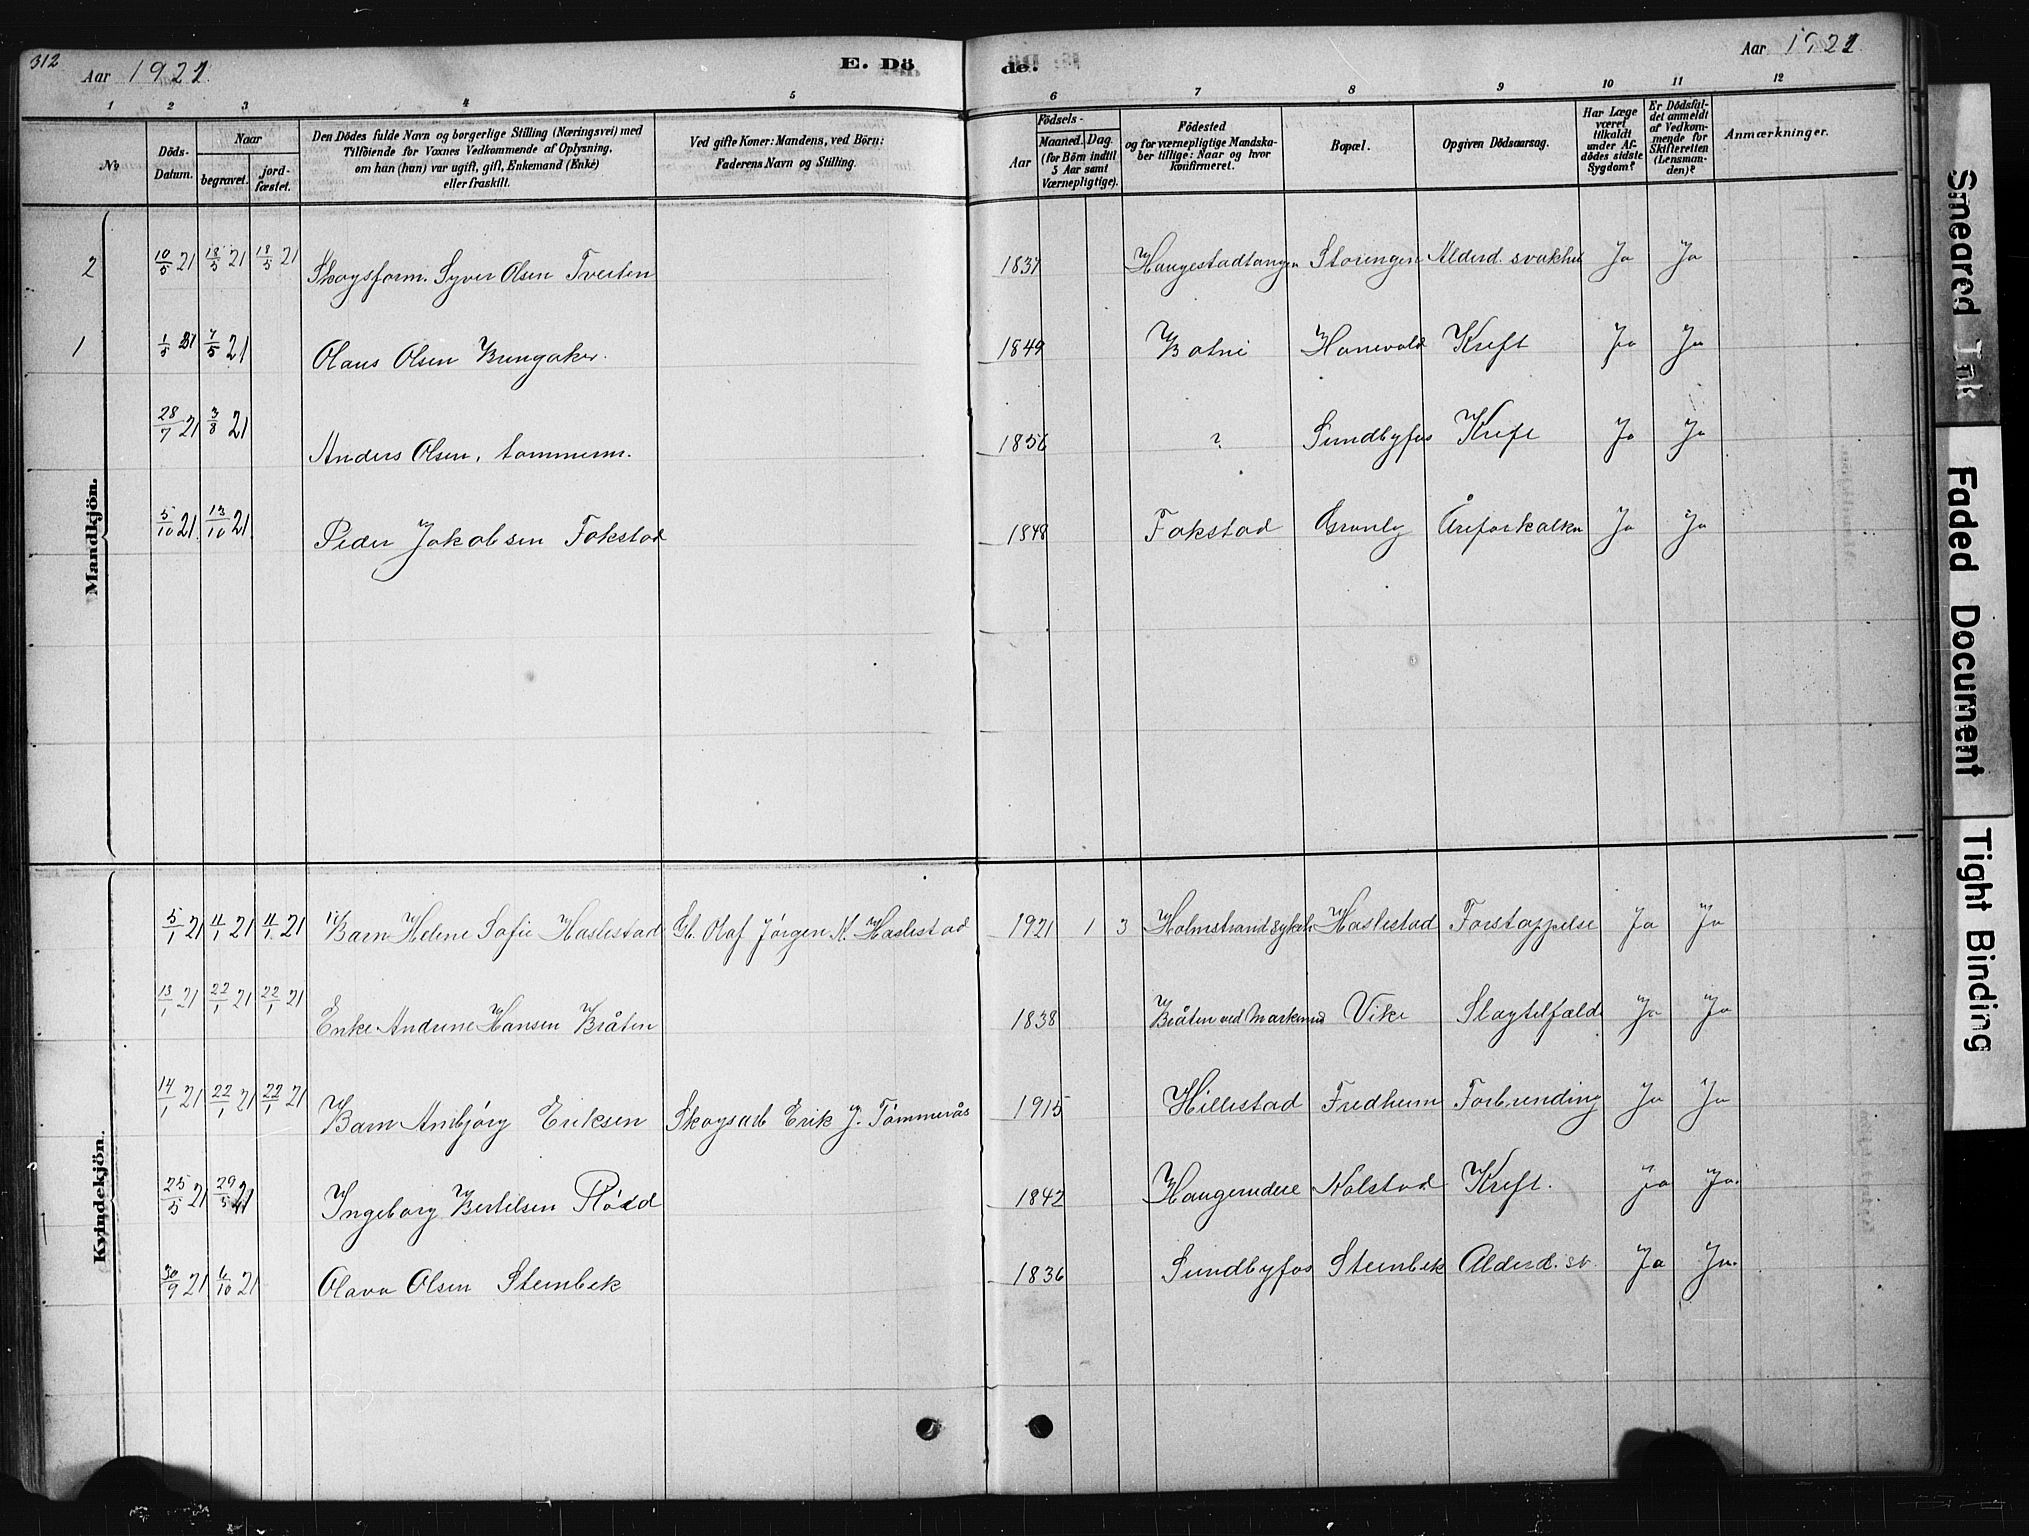 312
Aar 1921
E. Dö
de.
Aar 1921
1 2 3 4 5 6 7 8 9 10 11 12
No
Döds-Datum.
Naar
begravet.
jord-fæstet.
Den Dödes fulde Navn og borgerlige Stilling (Næringsvei) med
Tilföiende for Voxnes Vedkommende af Oplysning,
om han (hun) var ugift, gift, Enkemand (Enke)
eller fraskilt.
Ved gifte Koner: Mandens, ved Børn:
Faderens Navn og Stilling.
Födsels-
Aar
Maaned. Dag.
(for Börn indtil
5 Aar samt
Værnepligtige).
Födested
og for værnepligtige Mandska-
ber tillige: Naar og hvor
Konfirmeret.
Bopæl.
Opgiven Dödsaarsag.
Har Læge
været
tilkaldt
under Af-
dödes sidste
Sygdom?
Er Dödsfal-
det anmeldt
af Vedkom-
mende for
Skifteretten
(Lensman-
den)?
Anmærkninger.
Mandkjön.
2 10/5 21 18/5 21 18/5 21 Skogsform. Syver Olsen Tveiten 1837 Haugestadtangen Storengen Alderd. svakhet Ja Ja
1 1/5 21 7/5 21 Olaus Olsen Brengaker. 1849 Botne Hanevold Kreft Ja Ja
28/7 21 3/8 21 Anders Olsen, tømmerm. 1856 ? Sundbyfos Kreft Ja Ja
5/10 21 13/10 21 Peder Jakobsen Fokstad 1848 Fokstad Granly Åreforkalkn Ja Ja
Kvindekjön.
5/1 21 11/1 21 11/1 21 Barn Helene Sofie Haslestad Gb. Olaf Jørgen K. Haslestad 1921 1 3 Holmstrand sykeh. Haslestad Forstoppelse Ja Ja
13/1 21 22/1 21 22/1 21 Enke Andrine Hansen Bråten 1838 Bråten ved Markerud Vike Slagtilfælde Ja Ja
14/1 21 22/1 21 22/1 21 Barn Anbjørg Eriksen Skogsarb Erik J. Tømmerås 1915 Hillestad Fredheim Forbrending Ja Ja
25/5 21 29/5 21 Ingeborg Bertelsen Rødd 1842 Haugenedre Kolstad Kreft. Ja Ja.
30/9 21 6/10 21 Olava Olsen Stenbek 1836 Sundbyfos Stenbek Alderd. sv. Ja Ja.
Smeared Ink
Faded Document
Tight Binding